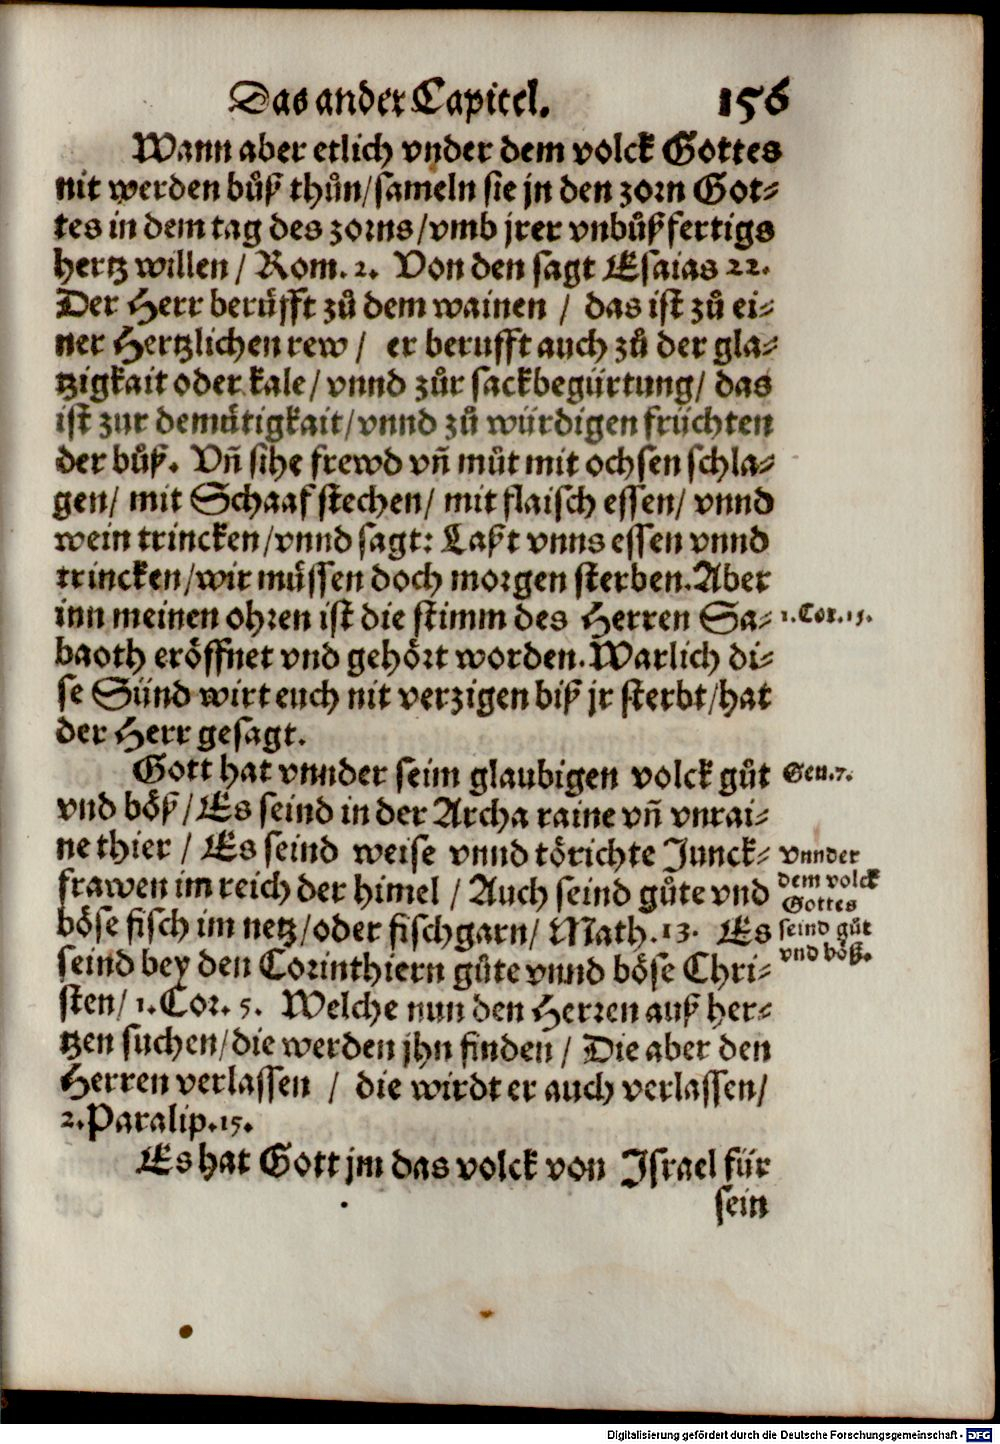 Das ander Capitel. 156
Wann aber etlich vnder dem volck Gottes
nit werden bůß thůn/sameln sie jn den zorn Got-
tes in dem tag des zorns/vmb jrer vnbůßfertigs
hertz willen / Rom. 2. Von den sagt Esaias 22.
Der Herr berůfft zů dem wainen / das ist zů ei-
ner Hertzlichen rew / er berufft auch zů der gla-
tzigkait oder kale/ vnnd zůr sackbegürtung/ das
ist zur demůtigkait/vnnd zů würdigen früchten
der bůß. Vñ sihe frewd vñ můt mit ochsen schla-
gen/ mit Schaaf stechen/ mit flaisch essen/ vnnd
wein trincken/vnnd sagt: Laßt vnns essen vnnd
trincken/wir müssen doch morgen sterben. Aber
inn meinen ohren ist die stimm des Herren Sa-
1. Cor. 15.
baoth eröffnet vnd gehört worden. Warlich di-
se Sünd wirt euch nit verzigen biß jr sterbt/hat
der Herr gesagt.
Gott hat vnnder seim glaubigen volck gůt
Gen. 7.
vnd böß/ Es seind in der Archa raine vñ vnrai-
ne thier / Es seind weise vnnd törichte Junck-
frawen im reich der himel / Auch seind gůte vnd
böse fisch im netz/oder fischgarn/ Math. 13. Es
vnnder
dem volck
Gottes
seind gůt
vnd böß.
seind bey den Corinthiern gůte vnnd böse Chri-
sten/ 1. Cor. 5. Welche nun den Herren auß her-
tzen suchen/die werden jhn finden / Die aber den
Herren verlassen / die wirdt er auch verlassen/
2. Paralip. 15.
Es hat Gott jm das volck von Israel für
sein
Digitalisierung gefördert durch die Deutsche Forschungsgemeinschaft - DFG